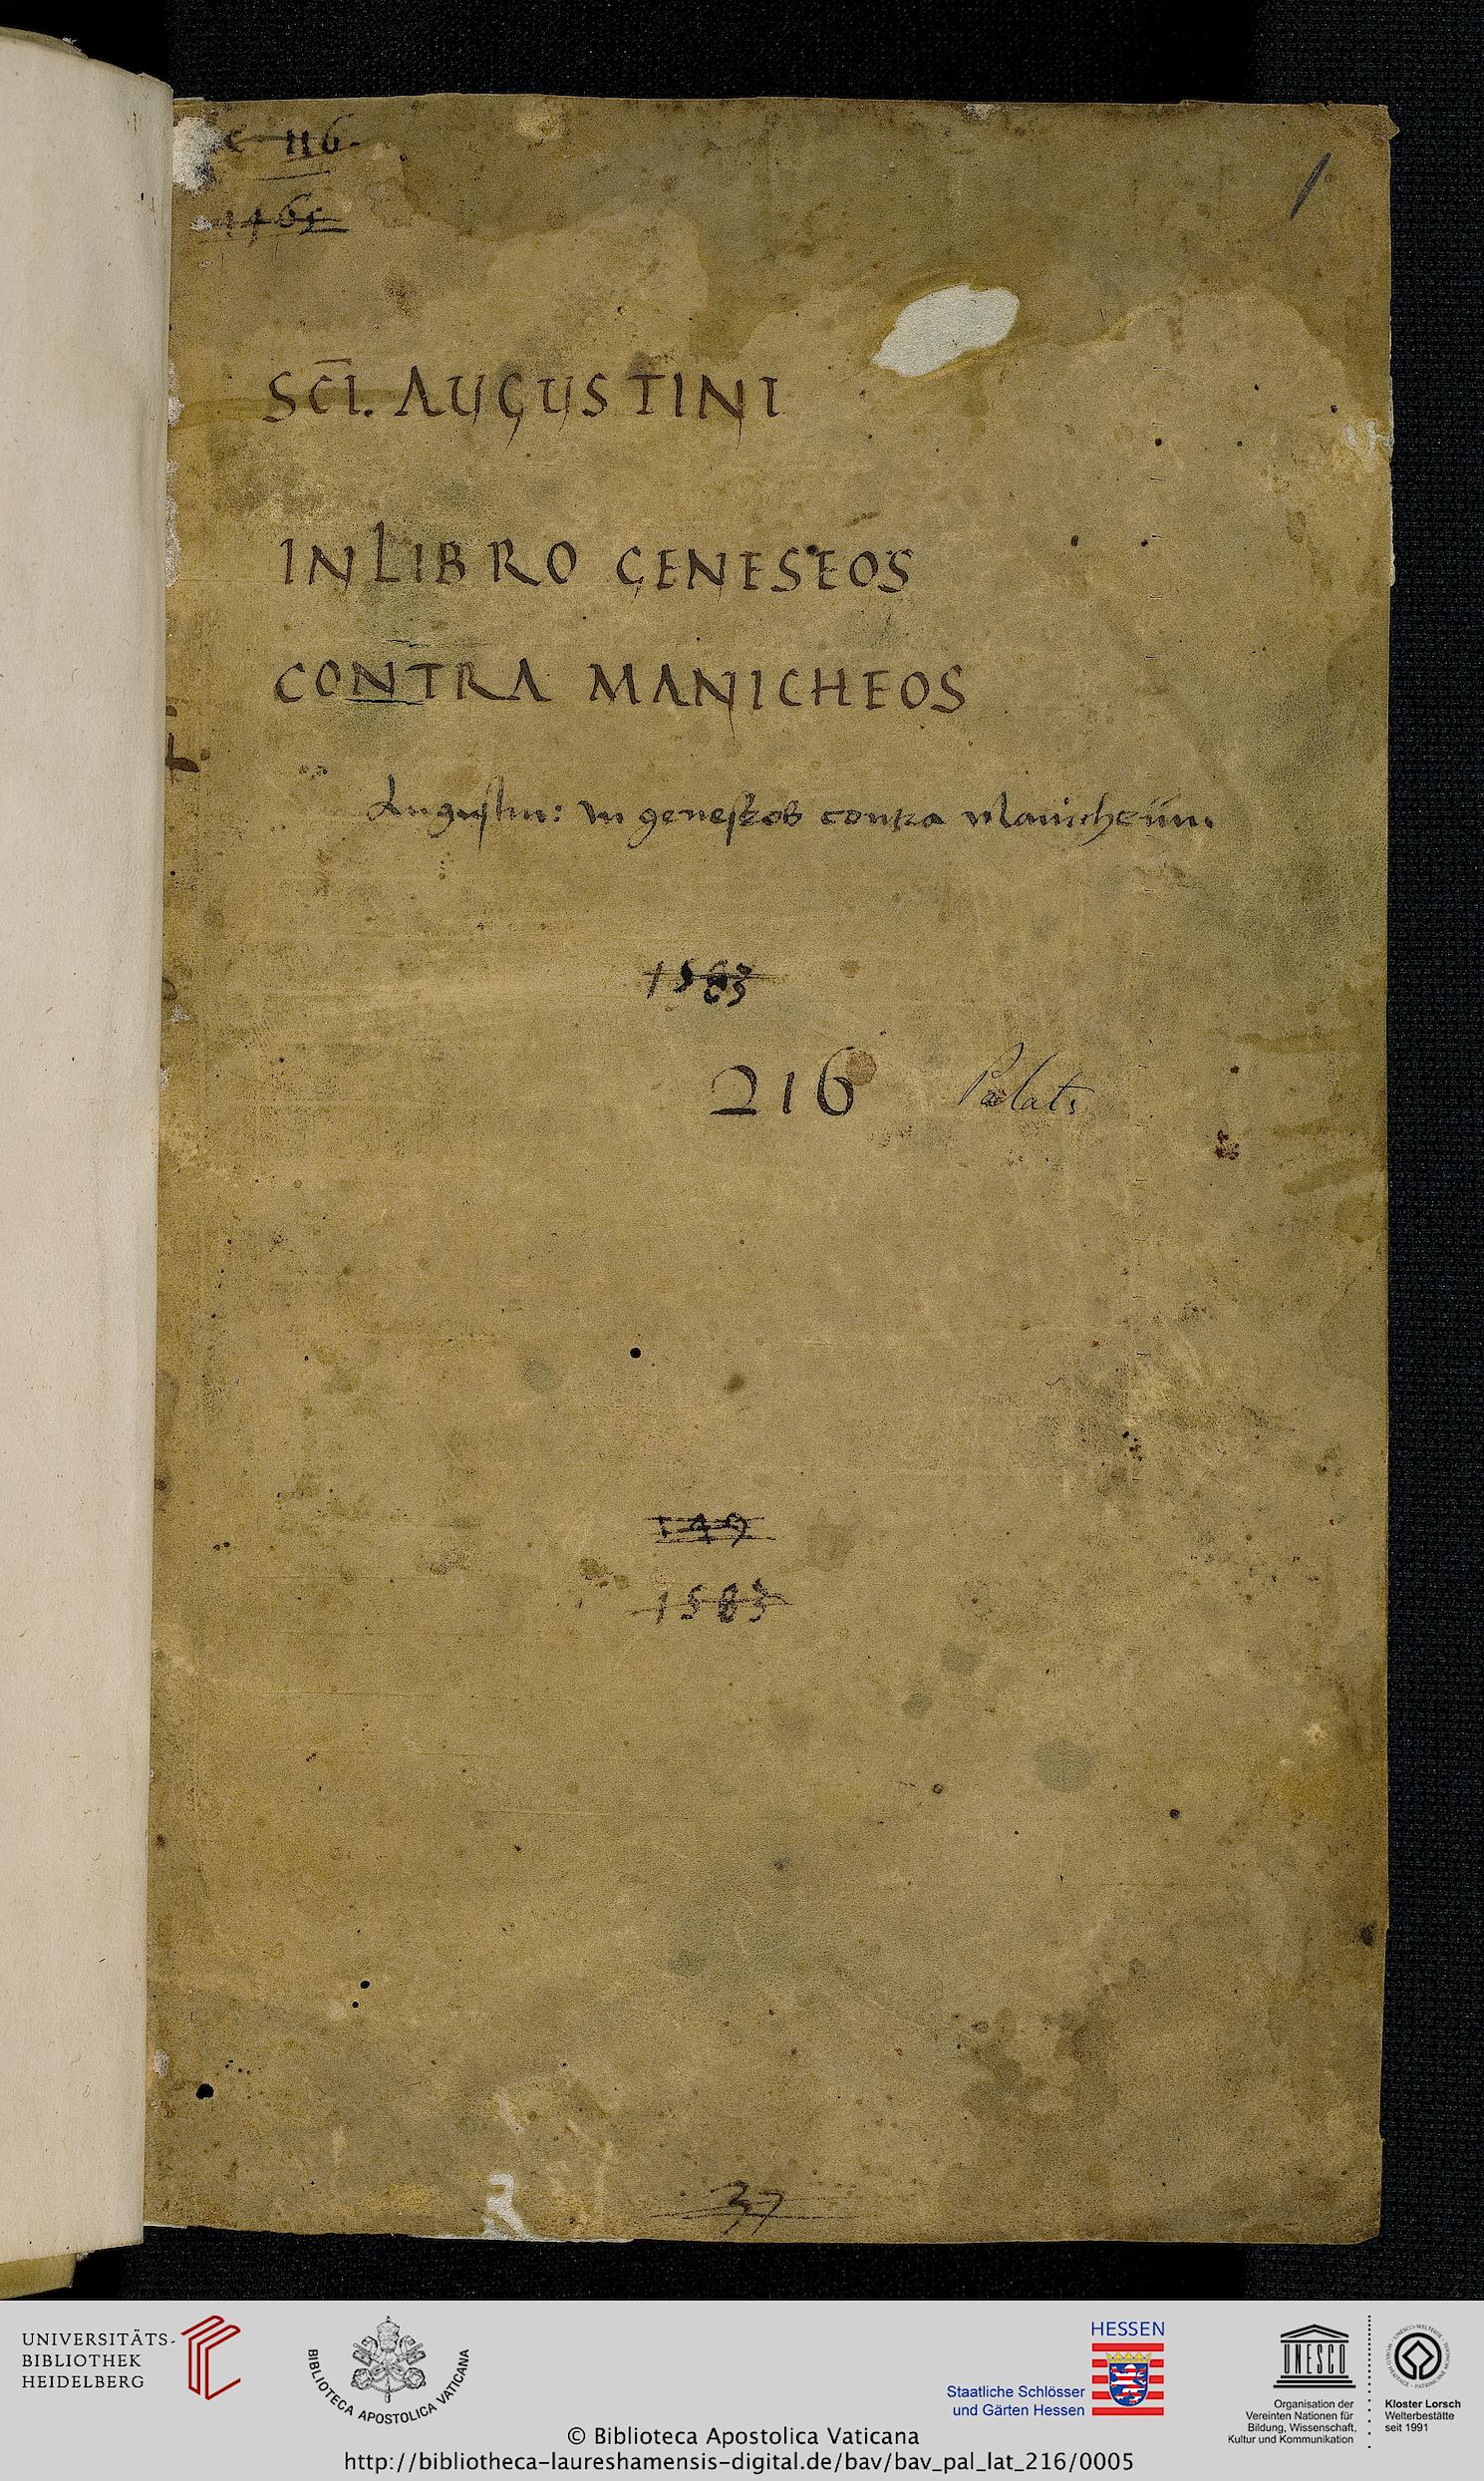 C 116.
1
1461
SC̅I. AUGUSTINI
IN LIBRO GENESEOS
CONTRA MANICHEOS
Augustin: in geneseos contra Manicheum.
1583
216 Palat.
149
1583
37
UNIVERSITÄTS-
BIBLIOTHEK
HEIDELBERG
BIBLIOTECA APOSTOLICA VATICANA
HESSEN
Staatliche Schlösser
und Gärten Hessen
UNESCO
Organisation der
Vereinten Nationen für
Bildung, Wissenschaft,
Kultur und Kommunikation
Kloster Lorsch
Welterbestätte
seit 1991
© Biblioteca Apostolica Vaticana
http://bibliotheca-laureshamensis-digital.de/bav/bav_pal_lat_216/0005